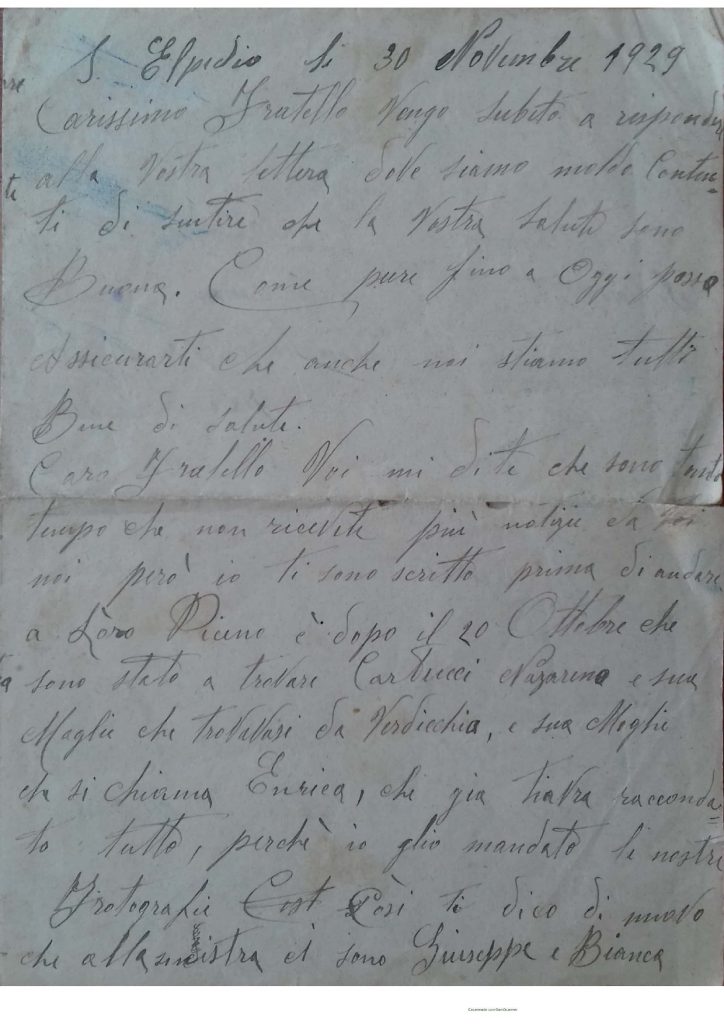 S. Elpidio li 30 Novembre 1929
Carissimo Fratello Vengo subito a rispondere
alla Vostra lettera dove siamo moldo Conten=
ti di sentire che la Vostra salute sono
Buona. Come pure fino a Oggi posso
Assicurarti che anche noi stiamo tutti
Bene di salute.
Caro Fratello Voi mi dite che sono tando
tempo che non ricevete più notizie da noi
noi però io ti sono scritto prima di andare
a Lòro Piceno è dopo il 20 Ottobre che
sono stato a trovare Carducci Nazareno e sua
Moglie che trovavasi da Verdicchia, e sua Moglie
che si chiama Enrica, che gia tiavra racconda=
to tutto, perchè io glio mandato le nostre
Frotografie Così ti dico di nuovo
che alla sinistra ci sono Giuseppe e Bianca
Scannerizzato con CamScanner